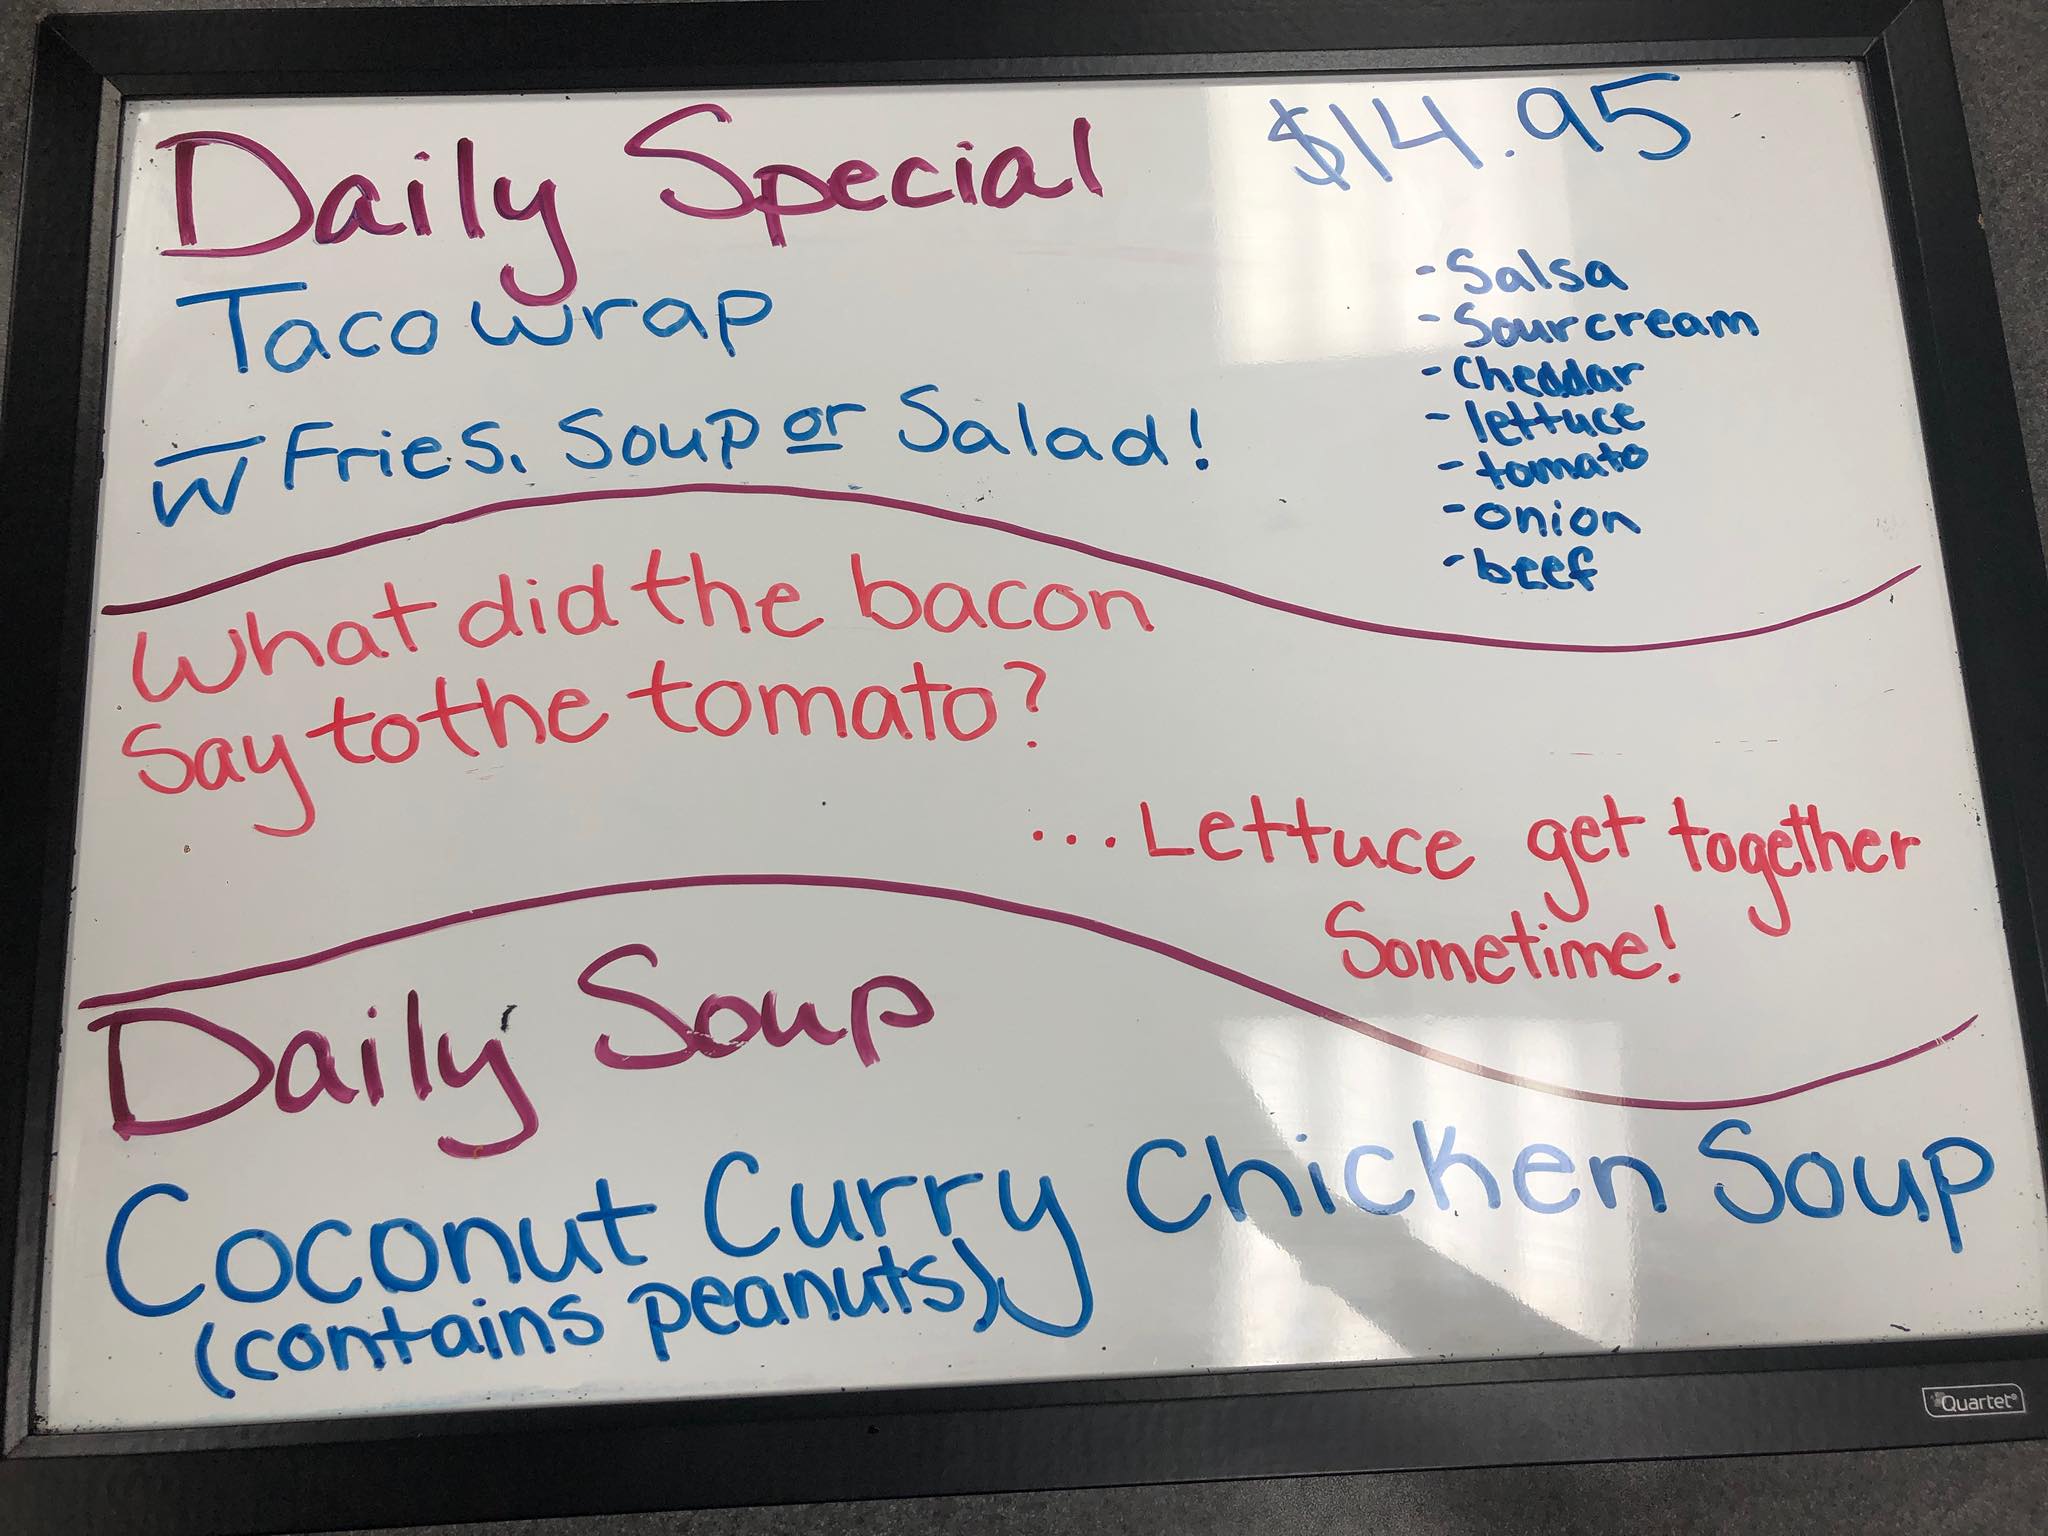 Daily Special
$14.95
Taco wrap
w Fries, Soup or Salad!
- Salsa
- Sour cream
- Cheddar
- lettuce
- tomato
- onion
- beef
What did the bacon
Say to the tomato?
...Lettuce get together
Sometime!
Daily Soup
Coconut Curry Chicken Soup
(contains peanuts)
Quartet